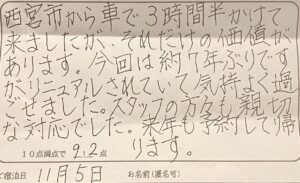 西宮市から車で3時間半かけて
来ましたが、それだけの価値が
あります。今回は約7年ぶりです
がリニュアルされていて気持よく過
ごせました。スタッフの方々も親切
な対応でした。来年も予約して帰
ります。
10点満点で 9.2点
ご宿泊日 11月5日 お名前(匿名可)